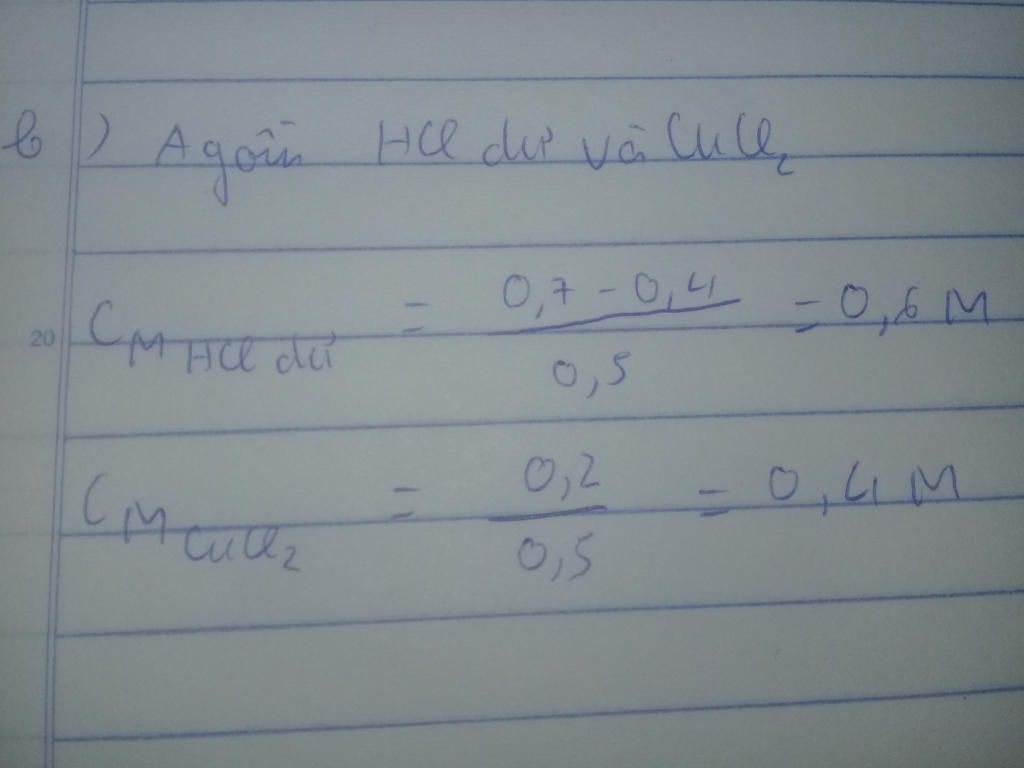 b) A gồm HCl dư và CuCl2
20
CM HCl dư = 0,7 - 0,4 / 0,5 = 0,6 M
CM CuCl2 = 0,2 / 0,5 = 0,4 M